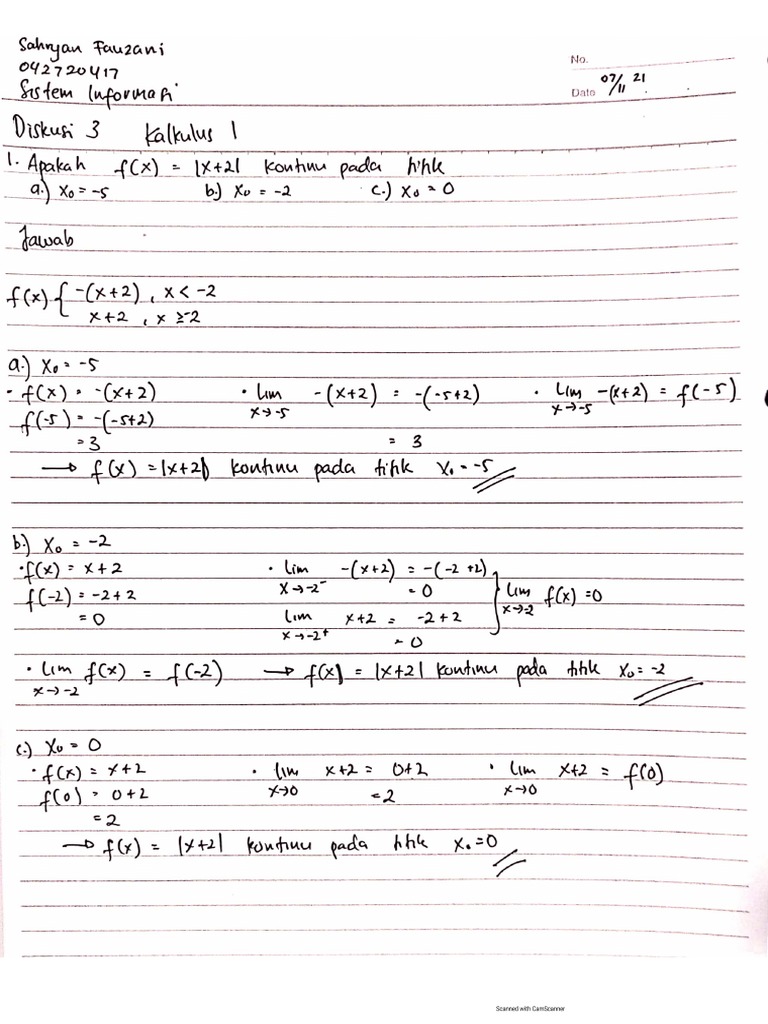 Sahryan Fauzani
042720417
Sistem Informasi
No.
Date 07/11 21
Diskusi 3 Kalkulus 1
1. Apakah f(x) = |x+2| kontinu pada titik
a.) x₀ = -5 b.) x₀ = -2 c.) x₀ = 0
Jawab
f(x) { -(x+2) , x < -2
x+2 , x ≥ -2
a.) x₀ = -5
· f(x) = -(x+2) · lim x→-5 -(x+2) = -(-5+2) · lim x→-5 -(x+2) = f(-5)
f(-5) = -(-5+2)
= 3 = 3
→ f(x) = |x+2| kontinu pada titik x₀ = -5
b.) x₀ = -2
· f(x) = x+2 · lim x→-2⁻ -(x+2) = -(-2+2)
f(-2) = -2+2 = 0 } lim x→-2 f(x) = 0
= 0 lim x→-2⁺ x+2 = -2+2
= 0
· lim x→-2 f(x) = f(-2) → f(x) = |x+2| kontinu pada titik x₀ = -2
c.) x₀ = 0
· f(x) = x+2 · lim x→0 x+2 = 0+2 · lim x→0 x+2 = f(0)
f(0) = 0+2 = 2
= 2
→ f(x) = |x+2| kontinu pada titik x₀ = 0
Scanned with CamScanner